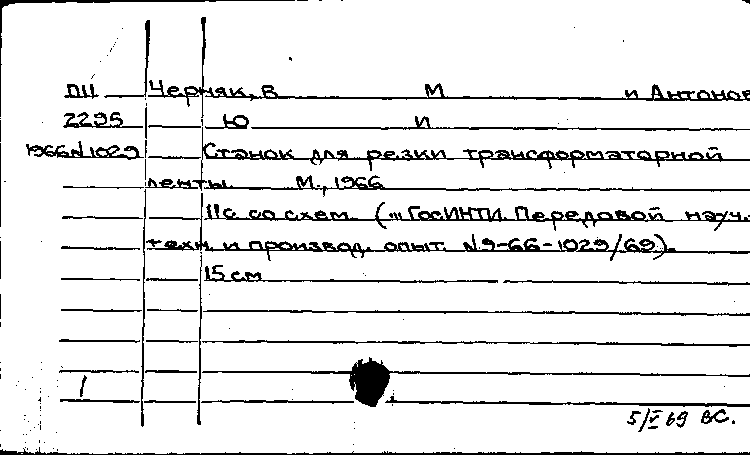 ПII Черняк, В М и Антонов
2295 Ю И
1966 N1029 Станок для резки трансформаторной
ленты. М., 1966
11с со схем. ("ГосИНТИ. Передовой науч.-
техн. и производ. опыт. N9-66-1029/69).
15 см
1
5/V 69 ВС.